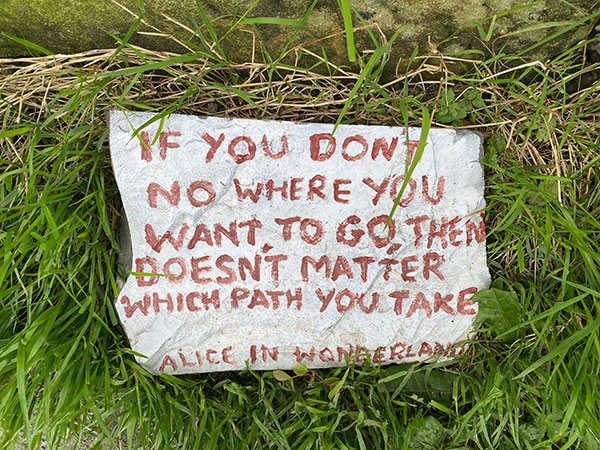 IF YOU DON'T
NO WHERE YOU
WANT TO GO, THEN
DOESN'T MATTER
WHICH PATH YOU TAKE
ALICE IN WONDERLAND